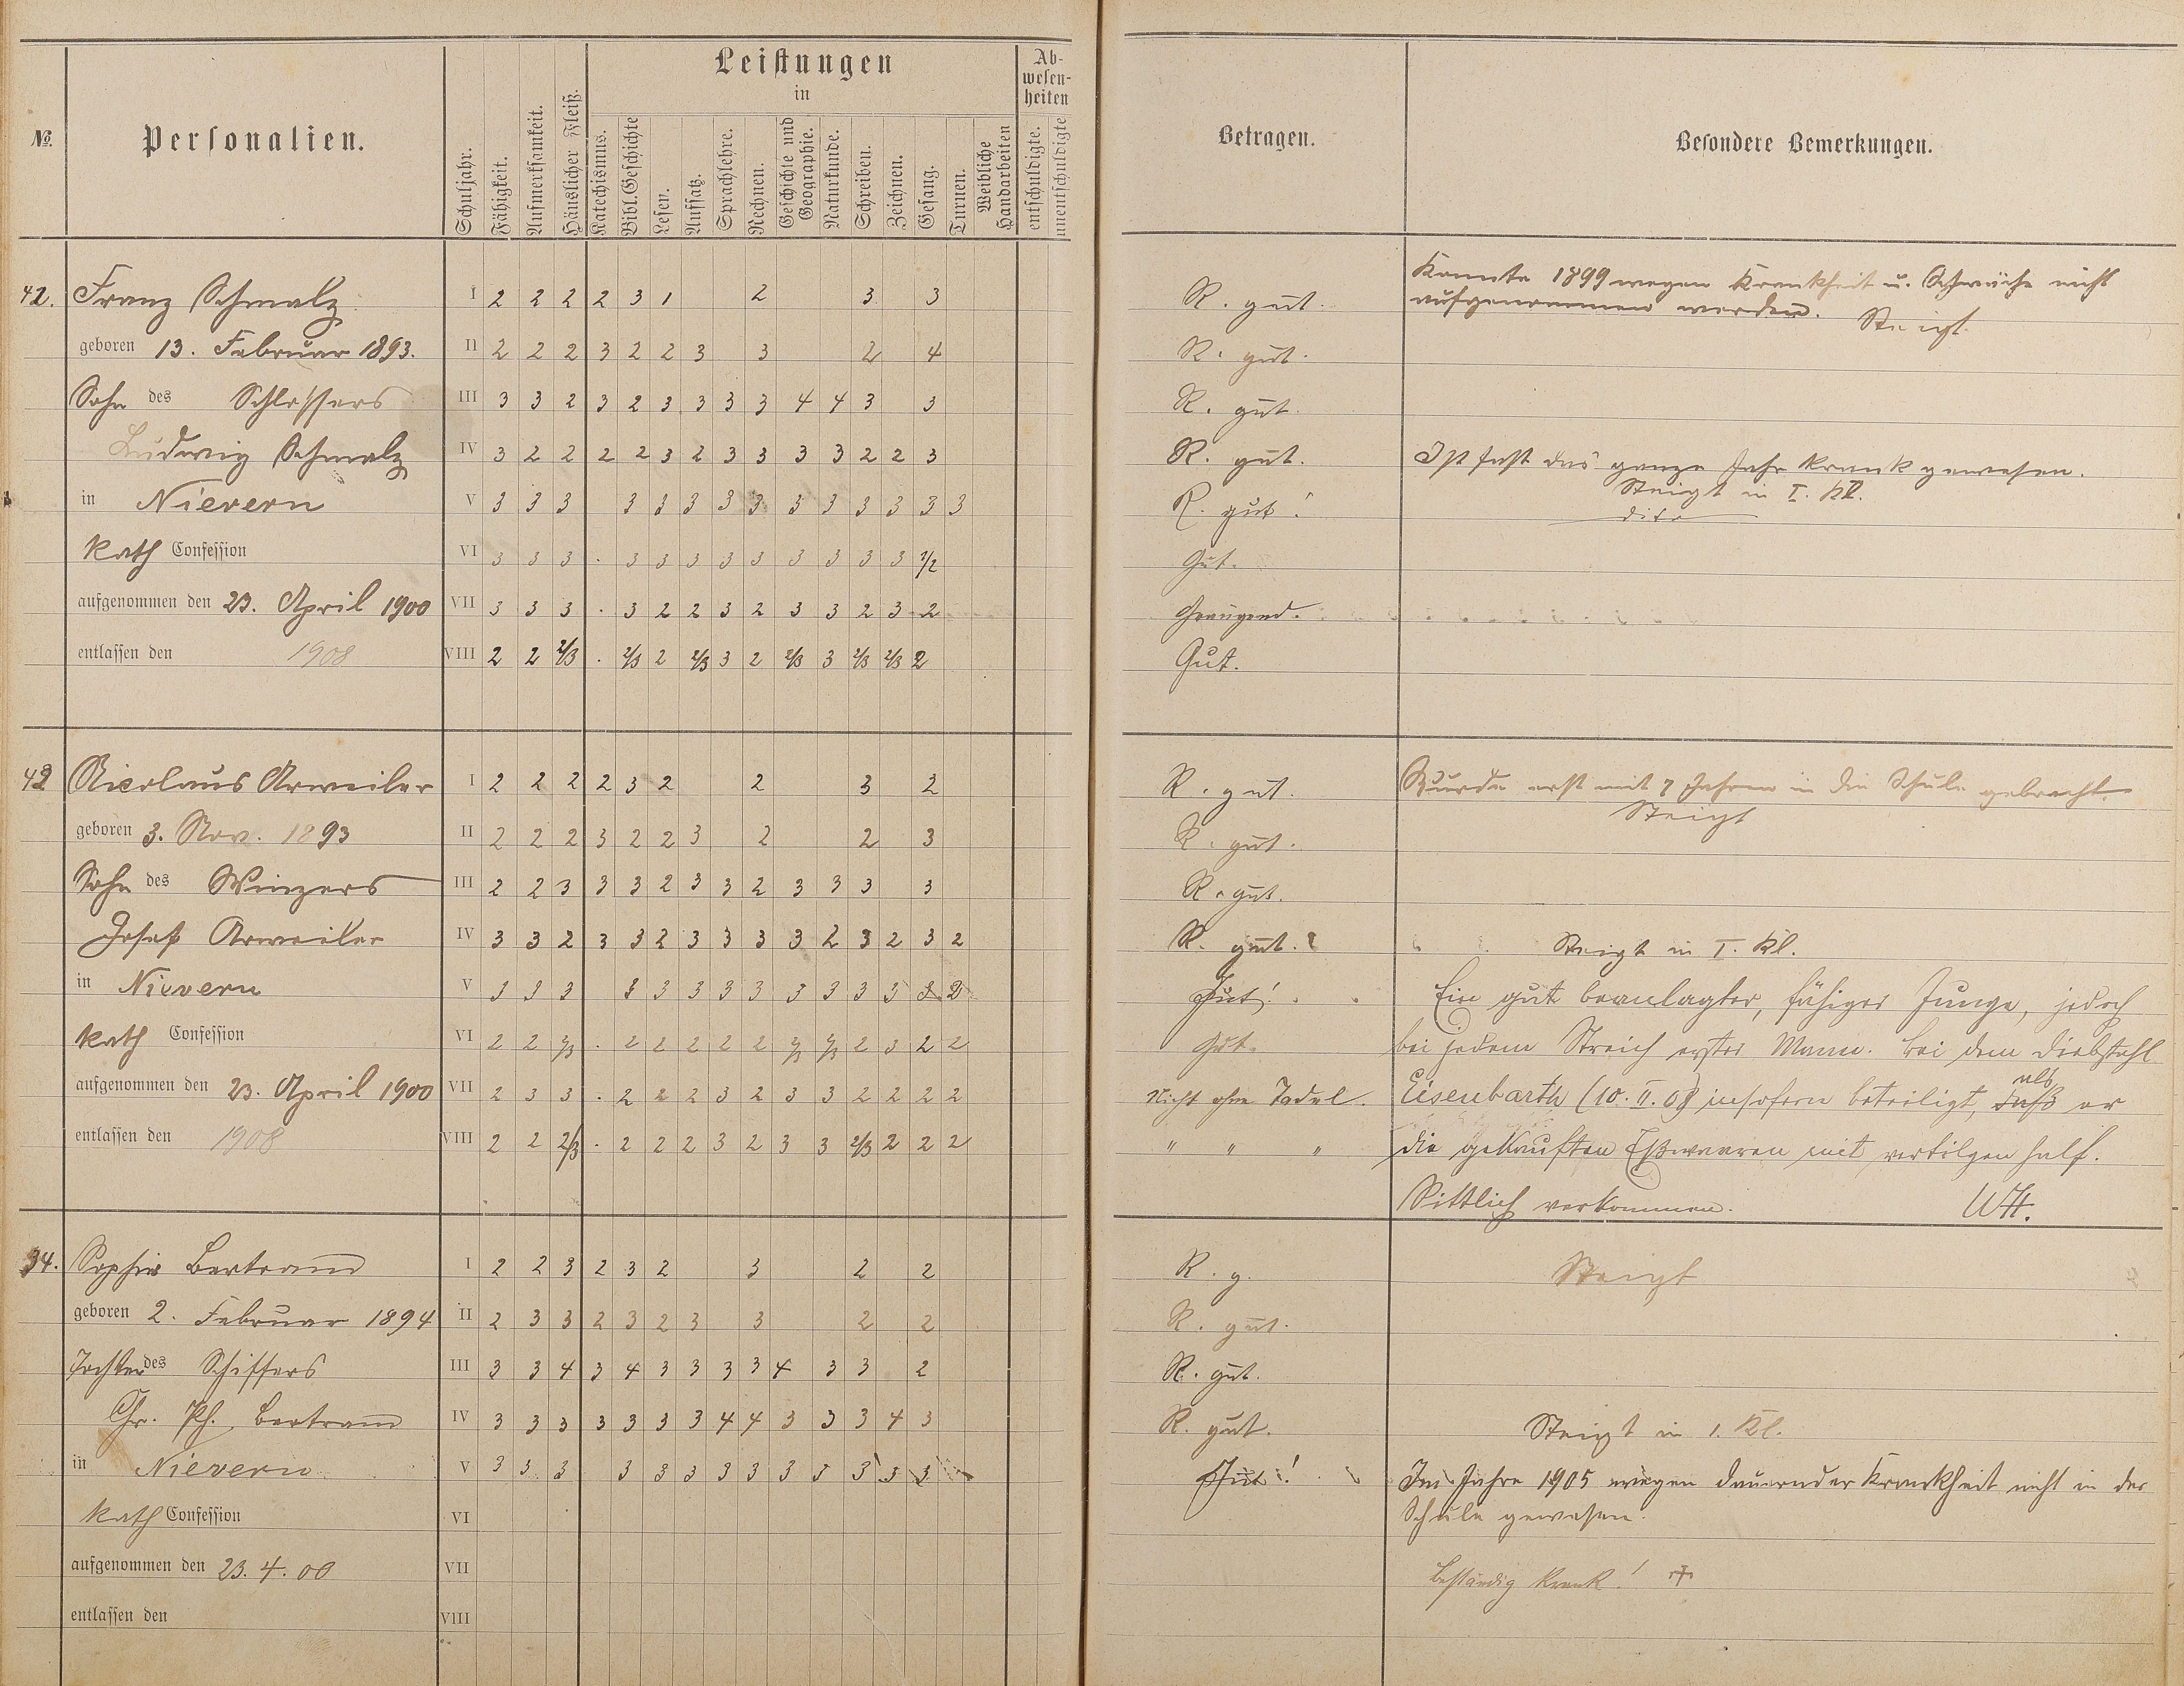 Leistungen
in
Ab-
wesen-
heiten
No.
Personalien.
Schuljahr.
Fähigkeit.
Aufmerksamkeit.
Häuslicher Fleiß.
Katechismus.
Bibl. Geschichte
Lesen.
Aufsatz.
Sprachlehre.
Rechnen.
Geschichte und
Geographie.
Naturkunde.
Schreiben.
Zeichnen.
Gesang.
Turnen.
Weibliche
Handarbeiten
entschuldigte.
unentschuldigte
Betragen.
Besondere Bemerkungen.
42. Franz Schmalz I 2 2 2 2 3 1 2 3 3 R. gut. Konnte 1899 wegen Krankheit u. Schwäche nicht
aufgenommen werden. Steigt.
geboren 13. Februar 1893. II 2 2 2 3 2 2 3 3 2 4 R. gut.
Sohn des Schlossers III 3 3 2 3 2 3 3 3 3 4 4 3 3 R. gut.
Ludwig Schmalz IV 3 2 2 2 2 3 2 3 3 3 3 2 2 3 R. gut. Ist fast das ganze Jahr krank gewesen.
Steigt in I. Kl.
in Nievern V 3 3 3 3 3 3 3 3 3 3 3 3 3 3 R. gut!
Kath Confession VI 3 3 3 . 3 3 3 3 3 3 3 3 3 1/2 Gut.
aufgenommen den 23. April 1900 VII 3 3 3 . 3 2 2 3 2 3 3 2 3 2 Genügend.
entlassen den 1908 VIII 2 2 2/3 . 2/3 2 2/3 3 2 2/3 3 2/3 2/3 2 Gut.
43 Nicolaus Arweiler I 2 2 2 2 3 2 2 3 2 R. gut. Wurde erst mit 7 Jahren in die Schule gebracht.
Steigt
geboren 3. Nov. 1893 II 2 2 2 3 2 2 3 2 2 3 R. gut.
Sohn des Winzers III 2 2 3 3 3 2 3 3 2 3 3 3 3 R. gut.
Josef Arweiler IV 3 3 2 3 3 2 3 3 3 3 2 3 2 3 2 R. gut. Steigt in I. Kl.
in Nievern V 3 3 3 3 3 3 3 3 3 3 3 3 3 2 Gut! Ein gut beanlagter, fähiger Junge, jedoch
Kath Confession VI 2 2 2/3 . 2 2 2 2 2 2/3 2/3 2 3 2 2 Gut. bei jedem Streich erster Mann. Bei dem Diebstahl
als
aufgenommen den 23. April 1900 VII 2 3 3 . 2 2 2 3 2 3 3 2 2 2 2 Nicht ohne Tadel. Eisenbarth (10. II. 08) insofern beteiligt, daß er
entlassen den 1908 VIII 2 2 2/3 . 2 2 2 3 2 3 3 2/3 2 2 2 " " " die gekauften Eßwaaren mit vertilgen half.
Sittlich verkommen.
34. Sophie Bertram I 2 2 3 2 3 2 3 2 2 R. g. Steigt
geboren 2. Februar 1894 II 2 3 3 2 3 2 3 3 2 2 R. gut.
Tochter des Schiffers III 3 3 4 3 4 3 3 3 3 4 3 3 2 R. gut.
Chr. Ph. Bertram IV 3 3 3 3 3 3 3 4 4 3 3 3 4 3 R. gut. Steigt in 1. Kl.
in Nievern V 3 3 3 3 3 3 3 3 3 3 3 3 3 Gut! Im Jahre 1905 wegen dauernder Krankheit nicht in der
Schule gewesen.
Kath Confession VI
aufgenommen den 23. 4. 00 VII Beständig krank!
entlassen den VIII